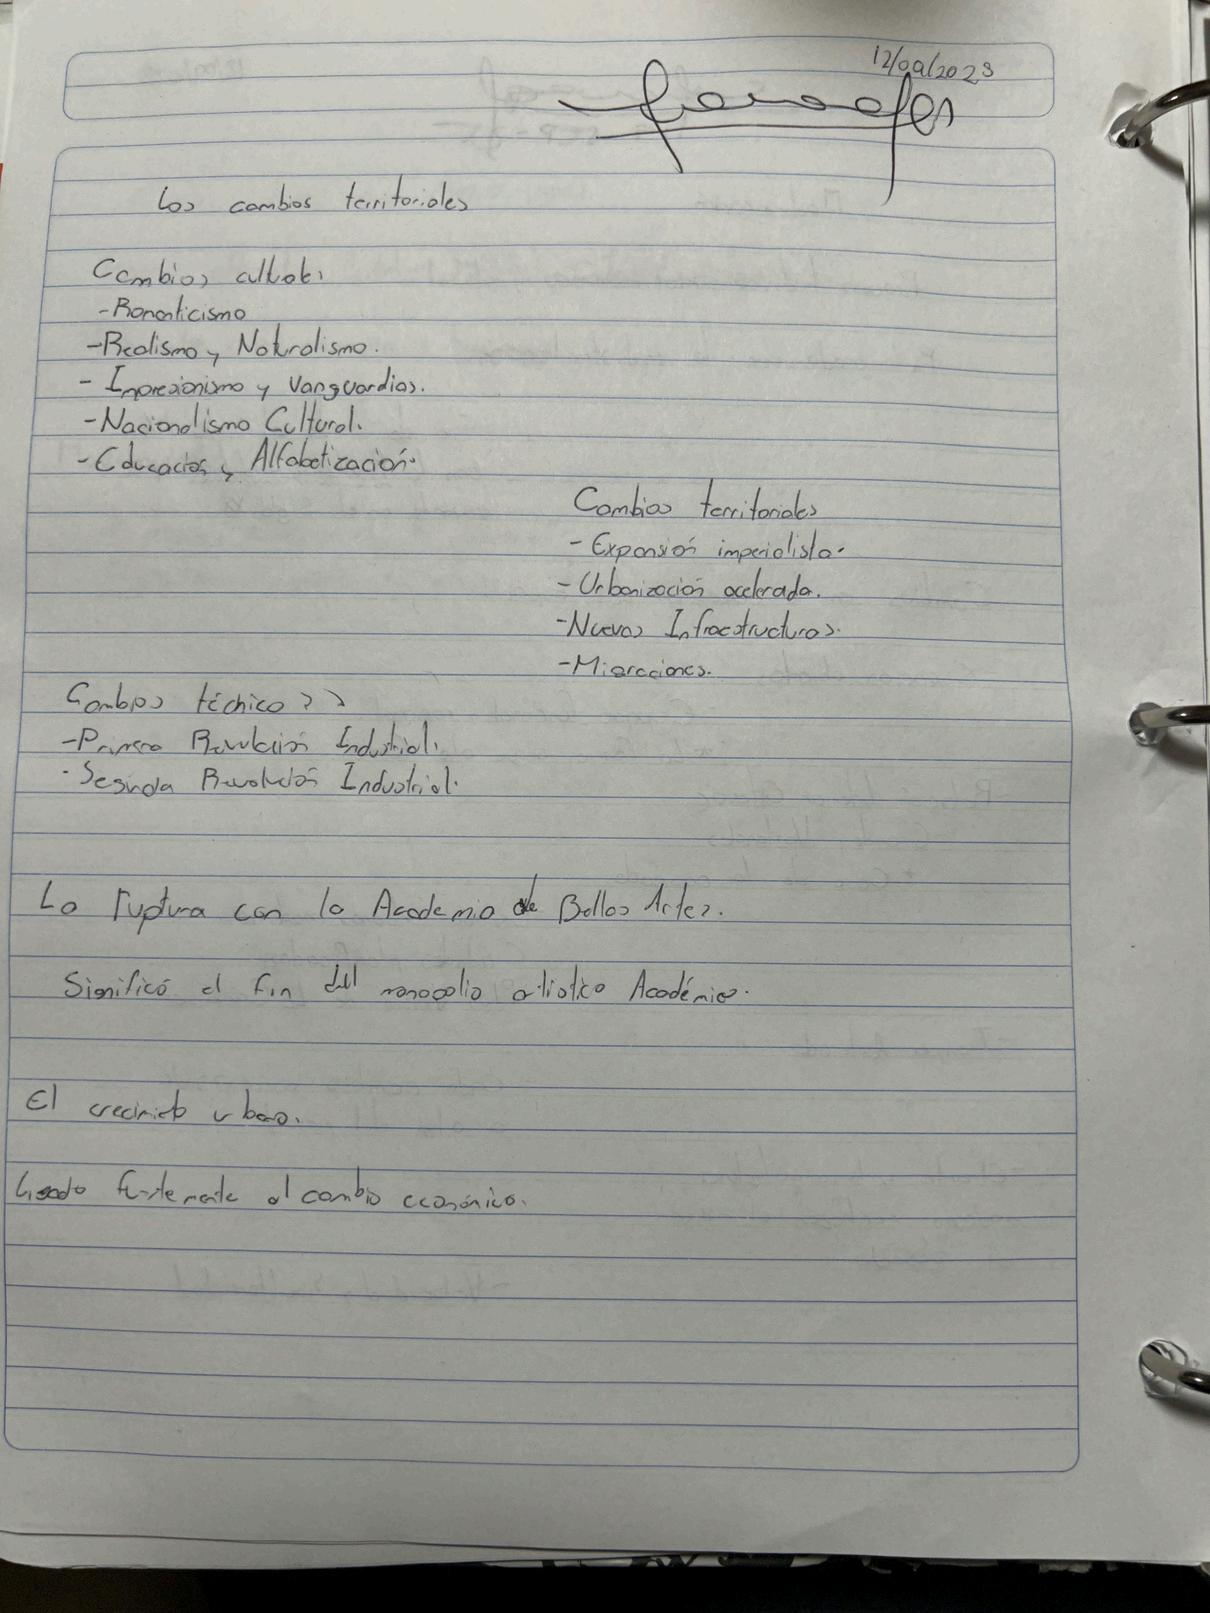 12/09/2023
Los cambios territoriales
Cambios culturales
-Romanticismo
-Realismo y Naturalismo.
- Impresionismo y Vanguardias.
-Nacionalismo Cultural.
-Educación y Alfabetización.
Cambios territoriales
- Expansión imperialista.
- Urbanización acelerada.
-Nuevas Infraestructuras.
-Migraciones.
Cambios técnicos
-Primera Revolución Industrial.
-Segunda Revolución Industrial.
La ruptura con la Academia de Bellas Artes.
Significó el fin del monopolio artístico Académico.
El crecimiento urbano.
Ligado fuertemente al cambio económico.